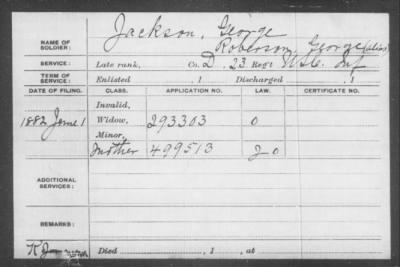 NAME OF SOLDIER: Jackson, George
Roberson, George (alias)
SERVICE: Late rank, Co. D, 23 Reg't U.S.C. Inf
TERM OF SERVICE: Enlisted , 1 Discharged , 1
DATE OF FILING. CLASS. APPLICATION NO. LAW. CERTIFICATE NO.
Invalid,
1882 June 1 Widow, 293303 O
Minor,
Mother 499513 20
ADDITIONAL SERVICES:
REMARKS:
Died , 1 , at